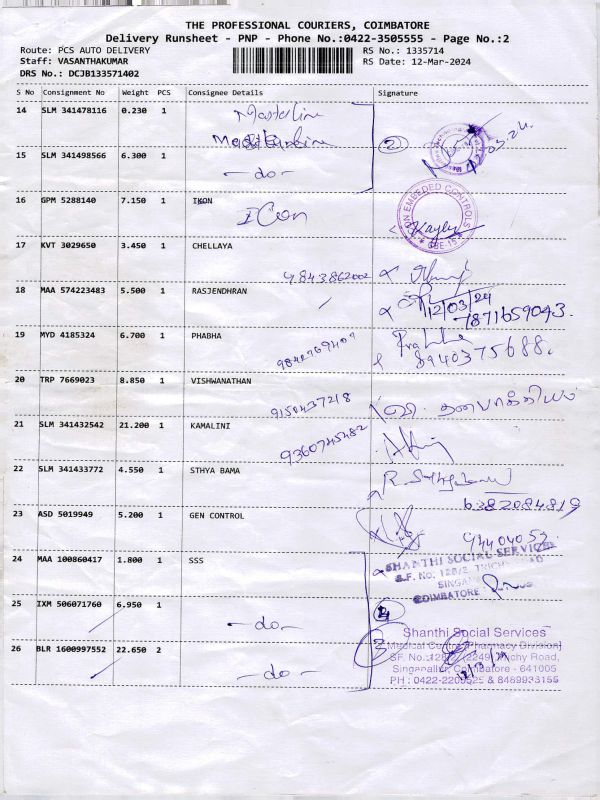 THE PROFESSIONAL COURIERS, COIMBATORE
Delivery Runsheet - PNP - Phone No.:0422-3505555 - Page No.:2
Route: PCS AUTO DELIVERY RS No.: 1335714
Staff: VASANTHAKUMAR RS Date: 12-Mar-2024
DRS No.: DCJB133571402
S No Consignment No Weight PCS Consignee Details Signature
14 SLM 341478116 0.230 1 Masterline
15 SLM 341498566 6.300 1 —do—
2
16 GPM 5288140 7.150 1 IKON
ICon
EMBEDED CONTROLS
CBE-15
17 KVT 3029650 3.450 1 CHELLAYA
9843862002
18 MAA 574223483 5.500 1 RASJENDHRAN
12/03/24
7871659043.
19 MYD 4185324 6.700 1 PHABHA
Prabha
8940375688.
20 TRP 7669023 8.850 1 VISHWANATHAN
9150437218
21 SLM 341432542 21.200 1 KAMALINI
9360745482
22 SLM 341433772 4.550 1 STHYA BAMA
6382084819
23 ASD 5019949 5.200 1 GEN CONTROL
24 MAA 100860417 1.800 1 SSS
SHANTHI SOCIAL SERVICES
COIMBATORE
25 IXM 506071760 6.950 1 —do—
26 BLR 1600997552 22.650 2 —do—
3
Shanthi Social Services
Medical Centre [Pharmacy Division]
Trichy Road,
Singanallur, Coimbatore - 641005